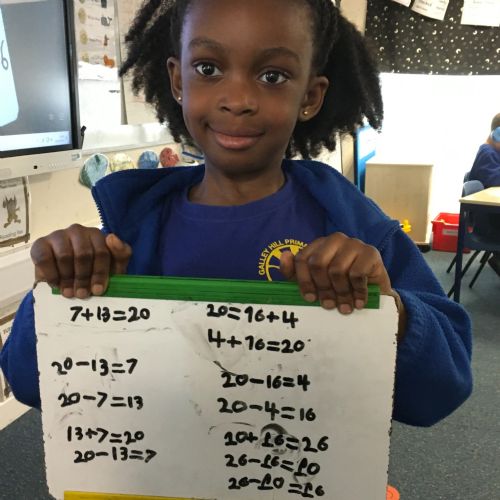 GALLEY HILL PRIM
7+13=20
20-13=7
20-7=13
13+7=20
20-13=7
20=16+4
4+16=20
20-16=4
20-4=16
10+16=26
26-16=10
26-10=16